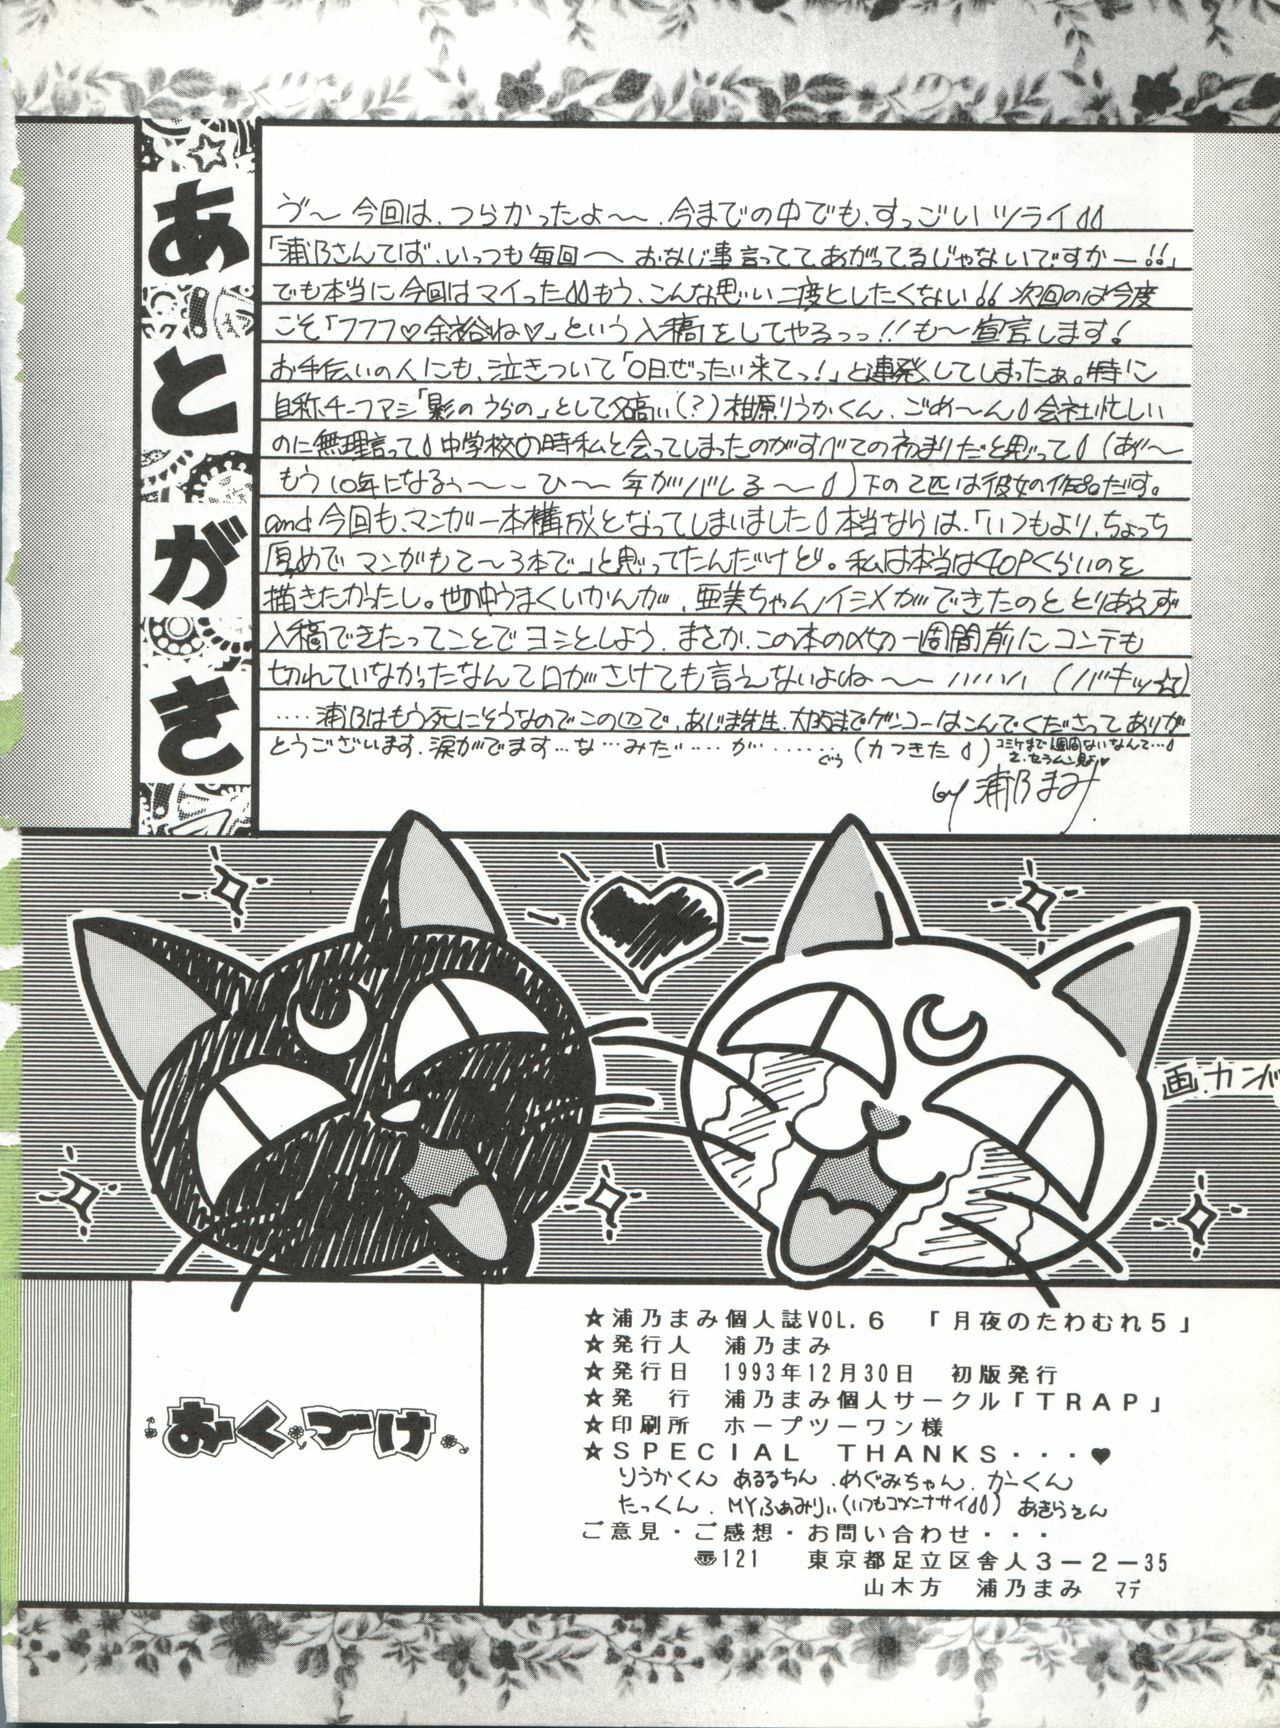 あとがき
ゔ～今回は、つらかったよ～～、今までの中でも、すっごいツライ
「浦乃さんてば、いつも毎回～おなじ事言っててあがってるじゃないですかー!!」
でも本当に今回はマイったもう、こんな思い二度としたくない!! 次回のは今度
こそ「フフフ♡余裕ね♡」という入稿をしてやるっっ!!も～宣言します!
お手伝いの人にも、泣きついて「0日、ぜったい来てっ!」と連発してしまったぁ。特に
自称チーフアシ「影のうらの」として名高い(?)相原りうかくん、ごめ～ん会社忙しい
のに無理言って中学校の時私と会ってしまったのがすべての初まりだと思って(あ゛～
もう10年になるぅ～～ーひ～年がバレる～)下の2匹は彼女の作品だす。
and 今回も、マンガ一本構成となってしまいました本当ならば、「いつもより、ちょっち
厚めでマンガもて～3本で」と思ってたんだけど。私は本当は40Pくらいのを
描きたかったし。世の中うまくいかんが、亜美ちゃんイジメができたのととりあえず
入稿できたってことでヨシとしよう。まさか、この本の〆切の一週間前にコンテも
切れていなかったなんて口がさけても言えないよね～ーハハハ(バキッ☆)
‥‥浦乃はもう死にそうなのでこの辺で、あじま先生、大阪までゲンコーはこんでくださってありが
とうございます、涙がでます…な…みだ…‥が‥‥‥‥ぐぅ(力つきた)コミケまで1週間ないなんて…
by 浦乃まみ
画.カンガ
おくづけ
★浦乃まみ個人誌VOL.6 「月夜のたわむれ5」
★発行人 浦乃まみ
★発行日 1993年12月30日 初版発行
★発 行 浦乃まみ個人サークル「TRAP」
★印刷所 ホープツーワン様
★SPECIAL THANKS・・・♥
りうかくん あるるちん.めぐみちゃん.かーくん
たっくん.MYふぁみりぃ(いつもゴメンナサイ) あきらさん
ご意見・ご感想・お問い合わせ・・・
〠121 東京都足立区舎人3－2－35
山木方 浦乃まみ マデ